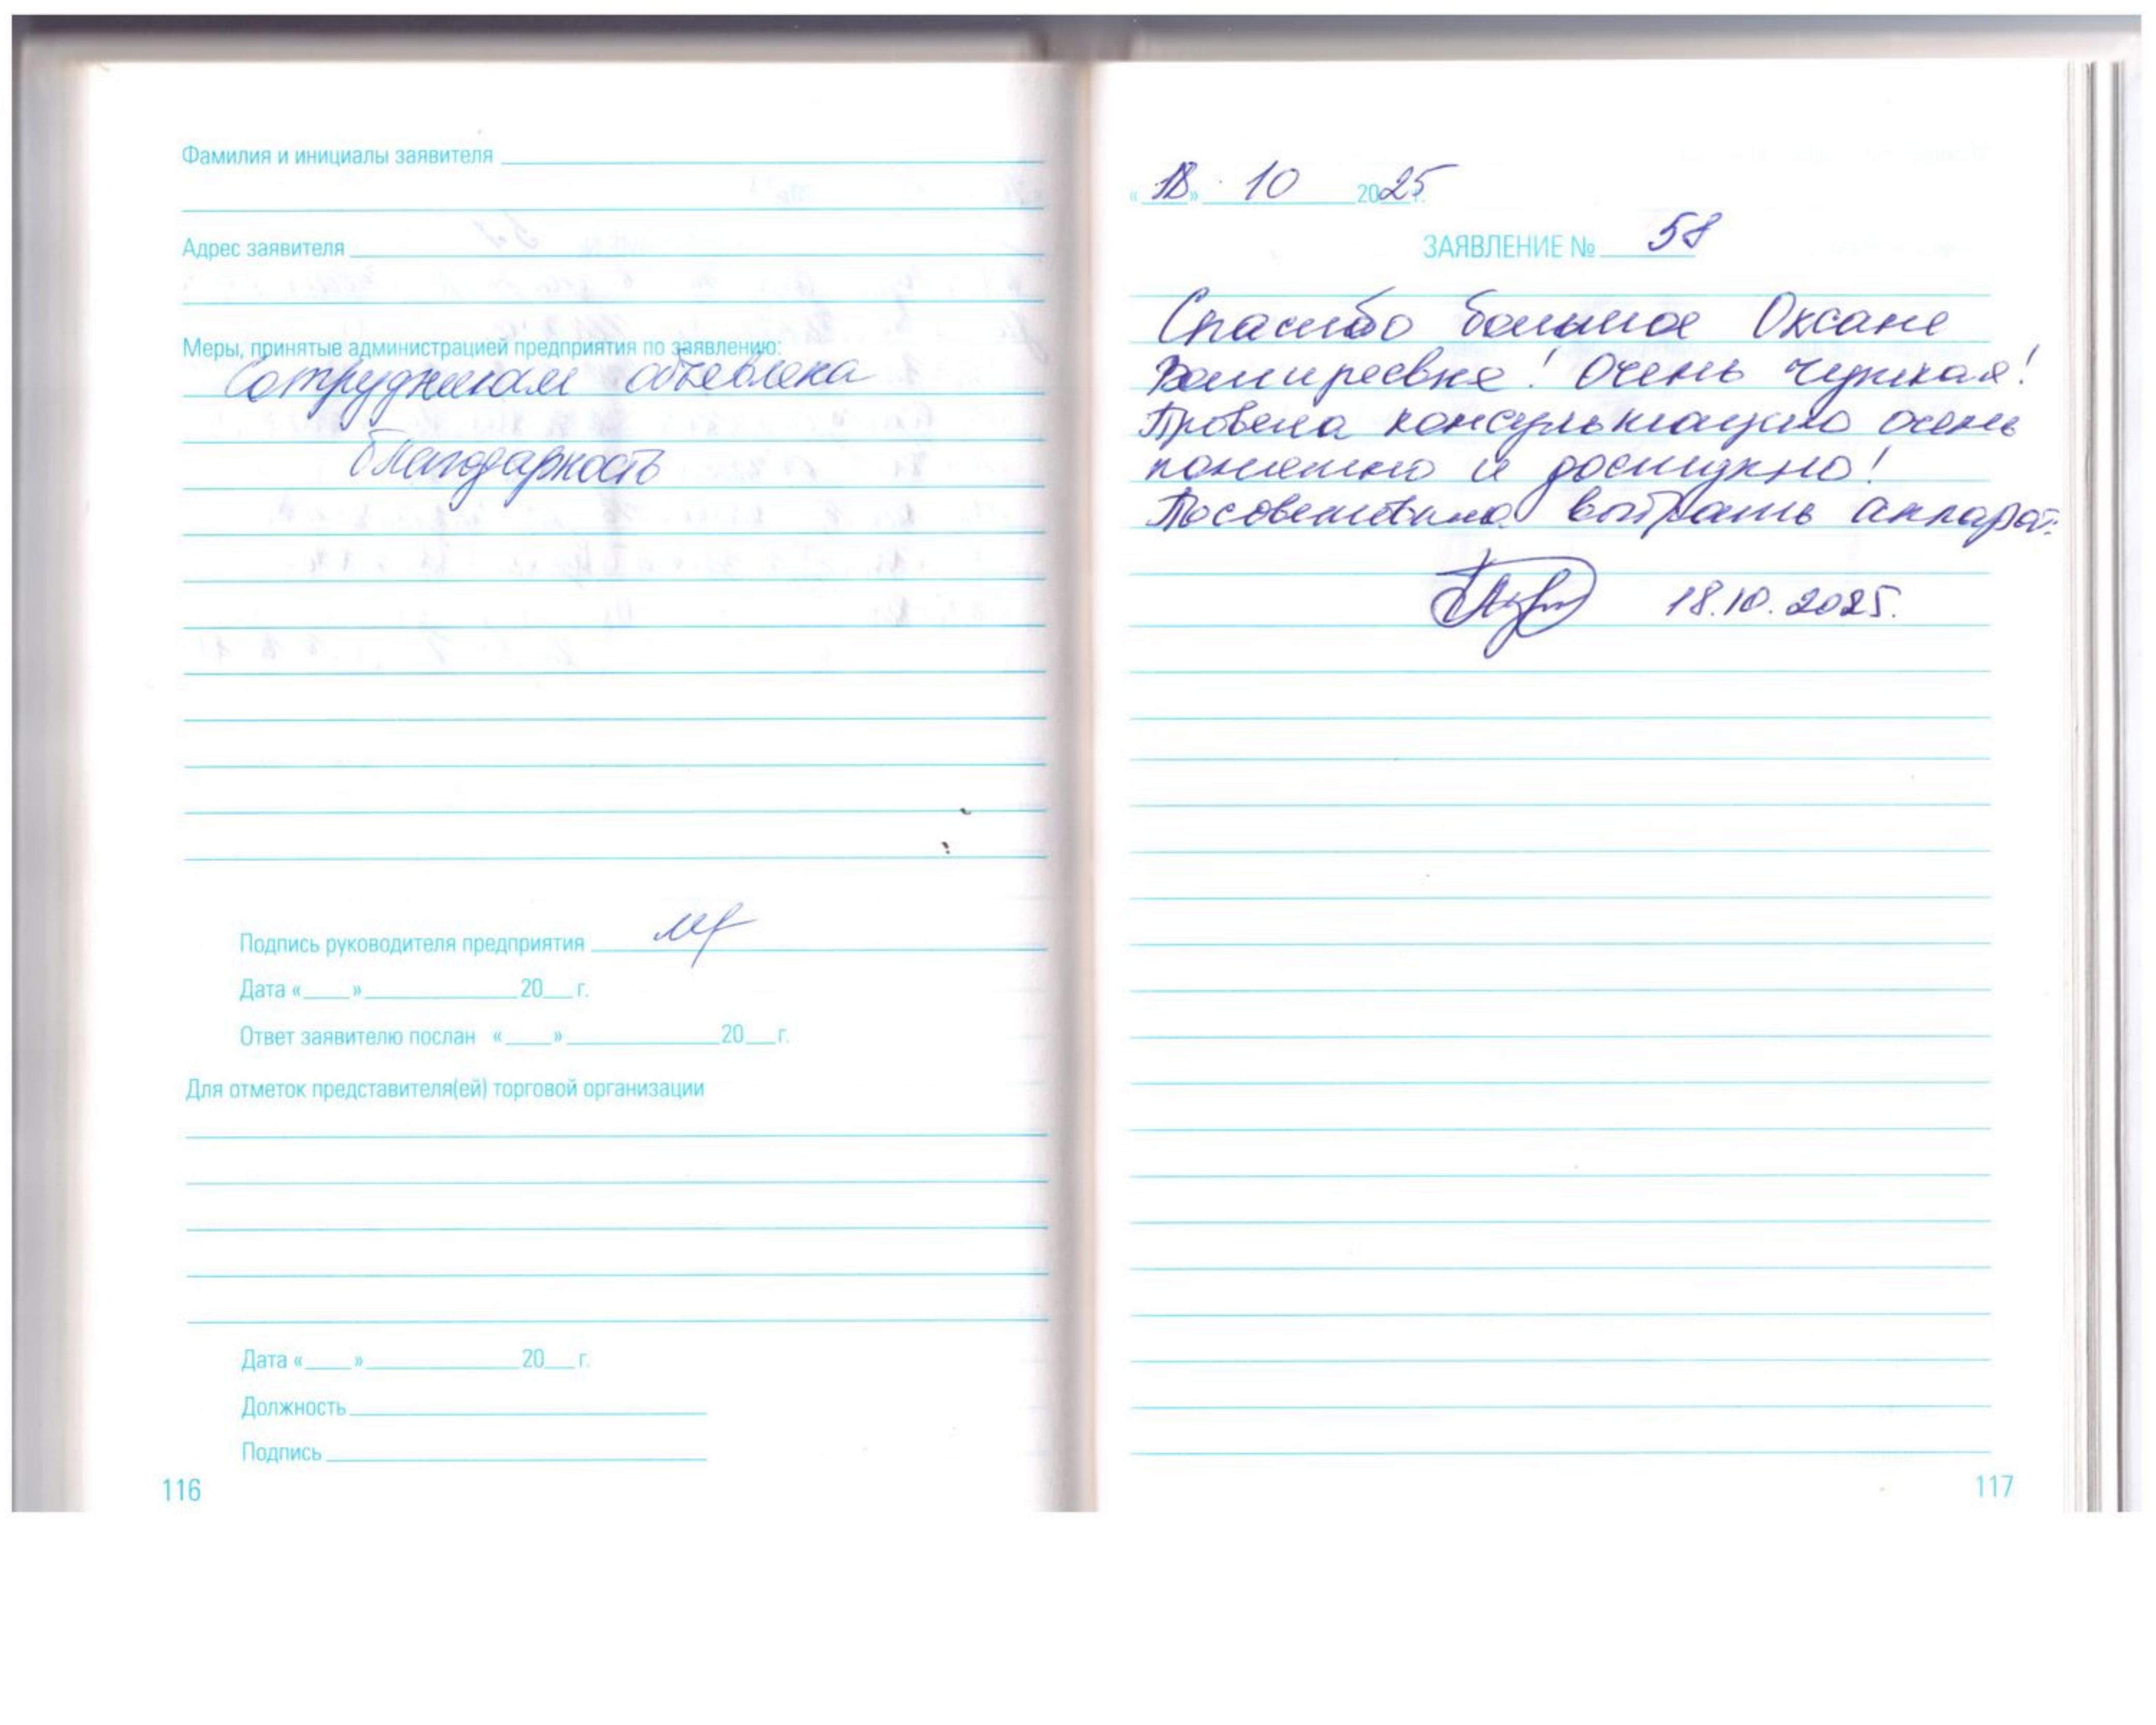 Фамилия и инициалы заявителя
Адрес заявителя
Меры, принятые администрацией предприятия по заявлению:
Сотрудникам объявлена
благодарность
Подпись руководителя предприятия
Дата «__» ________ 20__ г.
Ответ заявителю послан «__» ________ 20__ г.
Для отметок представителя(ей) торговой организации
Дата «__» ________ 20__ г.
Должность
Подпись
116
«18» 10 2025 г.
ЗАЯВЛЕНИЕ № 58
Спасибо большое Оксане
! Очень чуткая!
Провела консультацию очень
понятно и доступно!
Посоветовала выбрать аппарат.
18.10.2025.
117